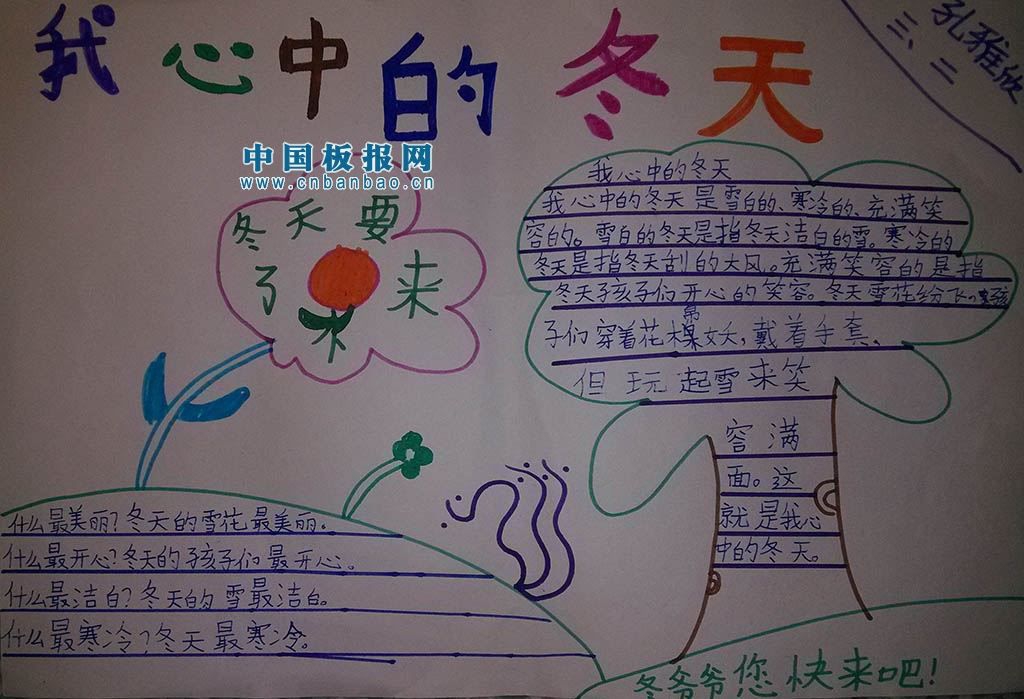 我心中的冬天
孔雅欣
三、二
中国板报网
www.cnbanbao.cn
冬天要
来
了
我心中的冬天
我心中的冬天是雪白的、寒冷的、充满笑
容的。雪白的冬天是指冬天洁白的雪。寒冷的
冬天是指冬天刮的大风。充满笑容的是指
冬天孩子们开心的笑容。冬天雪花纷飞
子们穿着花棉袄,戴着手套、
但玩起雪来笑
容满
面。这
就是我心
中的冬天。
什么最美丽?冬天的雪花最美丽.
什么最开心?冬天的孩子们最开心。
什么最洁白?冬天的雪最洁白。
什么最寒冷?冬天最寒冷。
冬爷爷您快来吧!